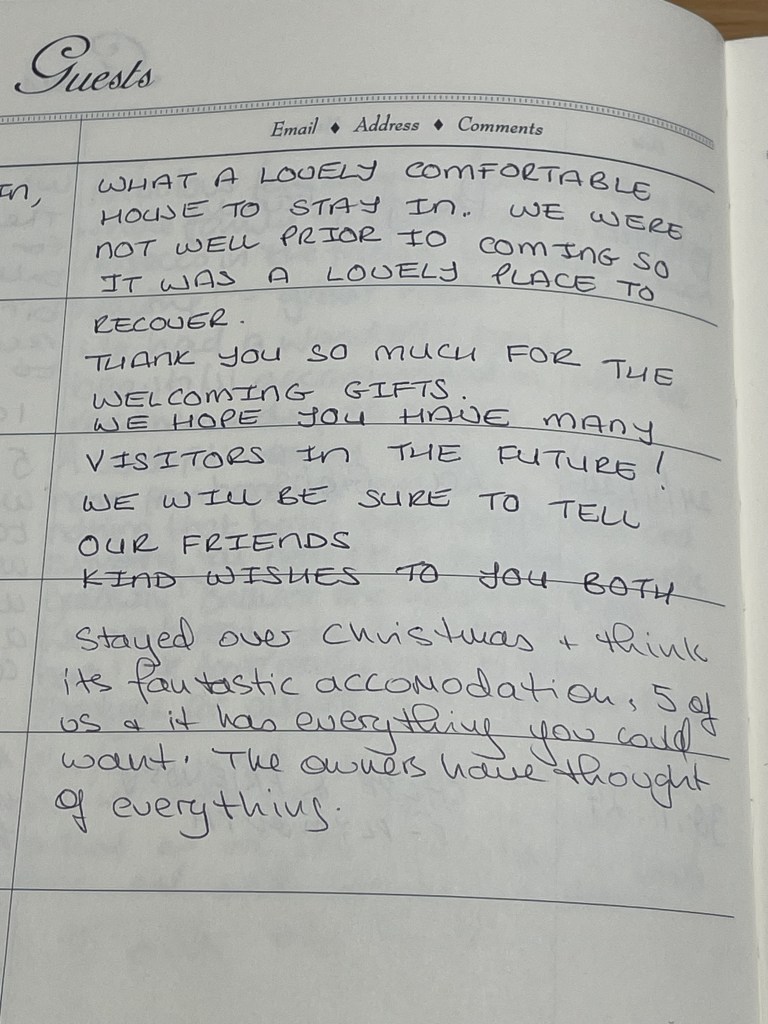 Guests
Email ♦ Address ♦ Comments
WHAT A LOVELY COMFORTABLE
HOUSE TO STAY IN. WE WERE
NOT WELL PRIOR TO COMING SO
IT WAS A LOVELY PLACE TO
RECOVER.
THANK YOU SO MUCH FOR THE
WELCOMING GIFTS.
WE HOPE YOU HAVE MANY
VISITORS IN THE FUTURE!
WE WILL BE SURE TO TELL
OUR FRIENDS
KIND WISHES TO YOU BOTH
Stayed over Christmas + think
its fantastic accomodation, 5 of
us & it has everything you could
want. The owners have thought
of everything.